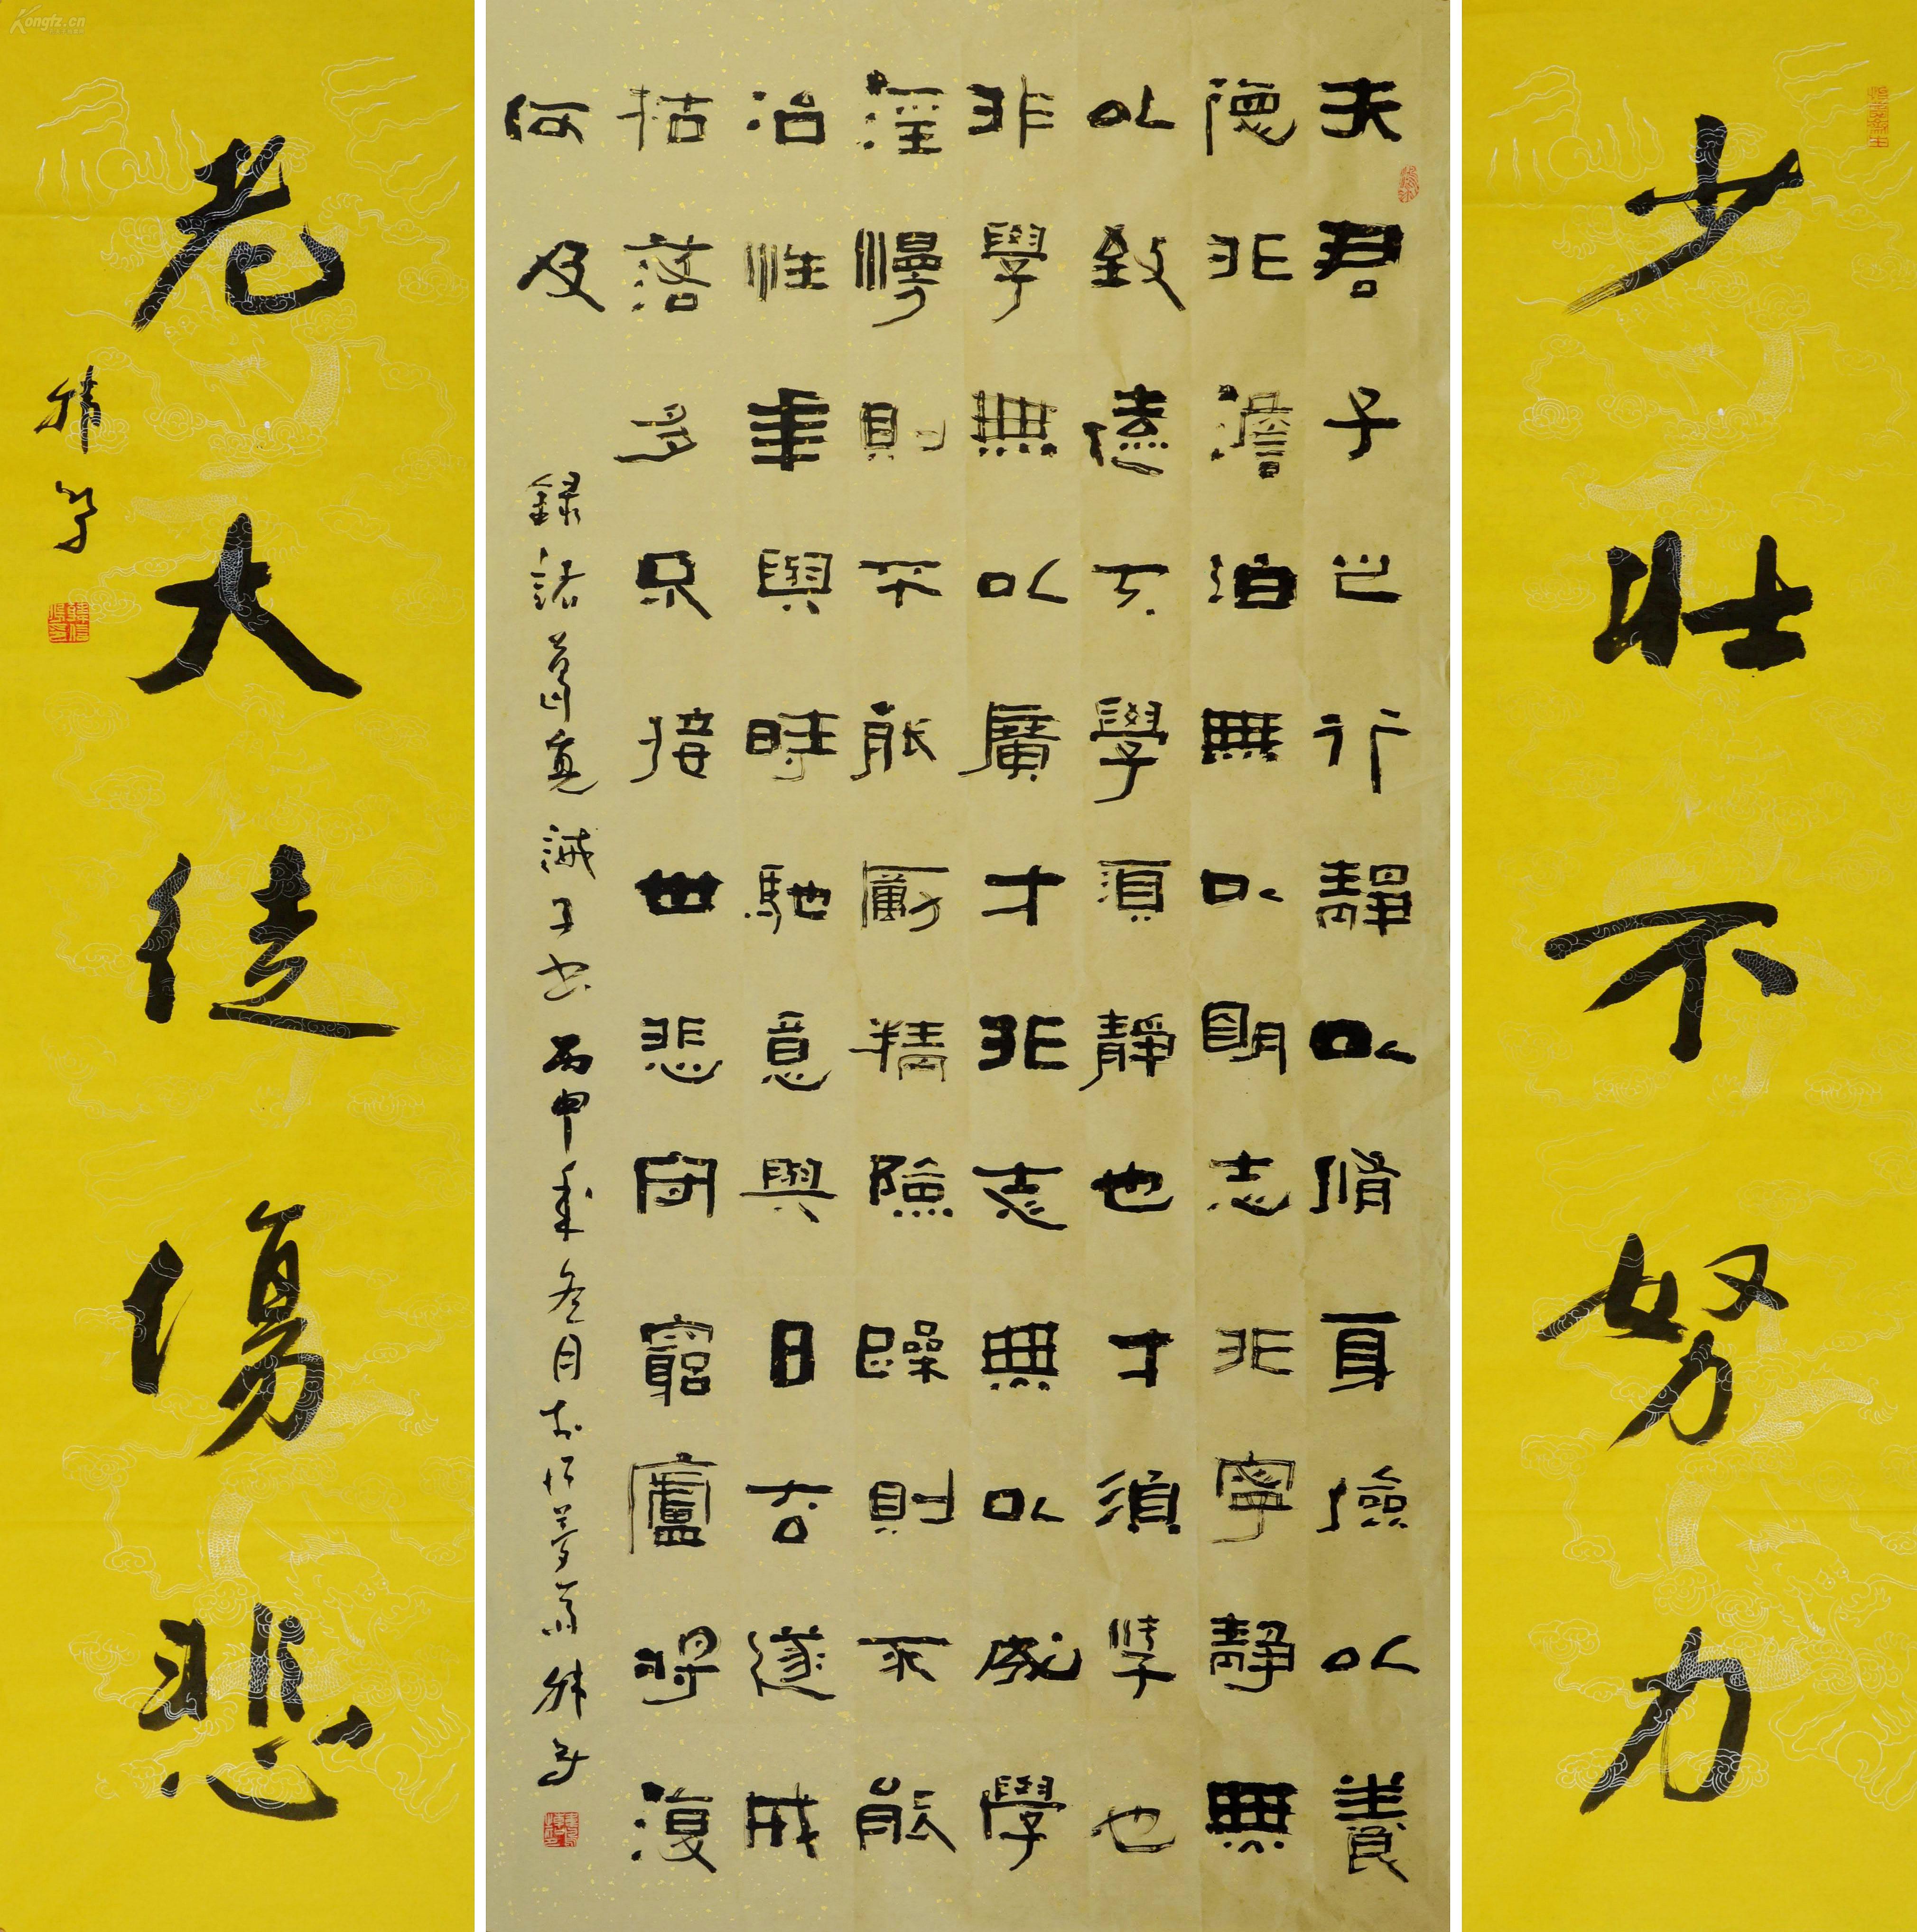 少壯不努力
夫君子之行靜以脩身儉以養
德非澹泊無以明志非寧靜無
以致遠夫學須靜也才須學也
非學無以廣才非志無以成學
淫慢則不能勵精險躁則不能
治性年與時馳意與日去遂成
枯落多不接世悲守窮廬將復
何及
錄諸葛亮誡子书丙申年冬月於
老大徒傷悲
Kongfz.cn